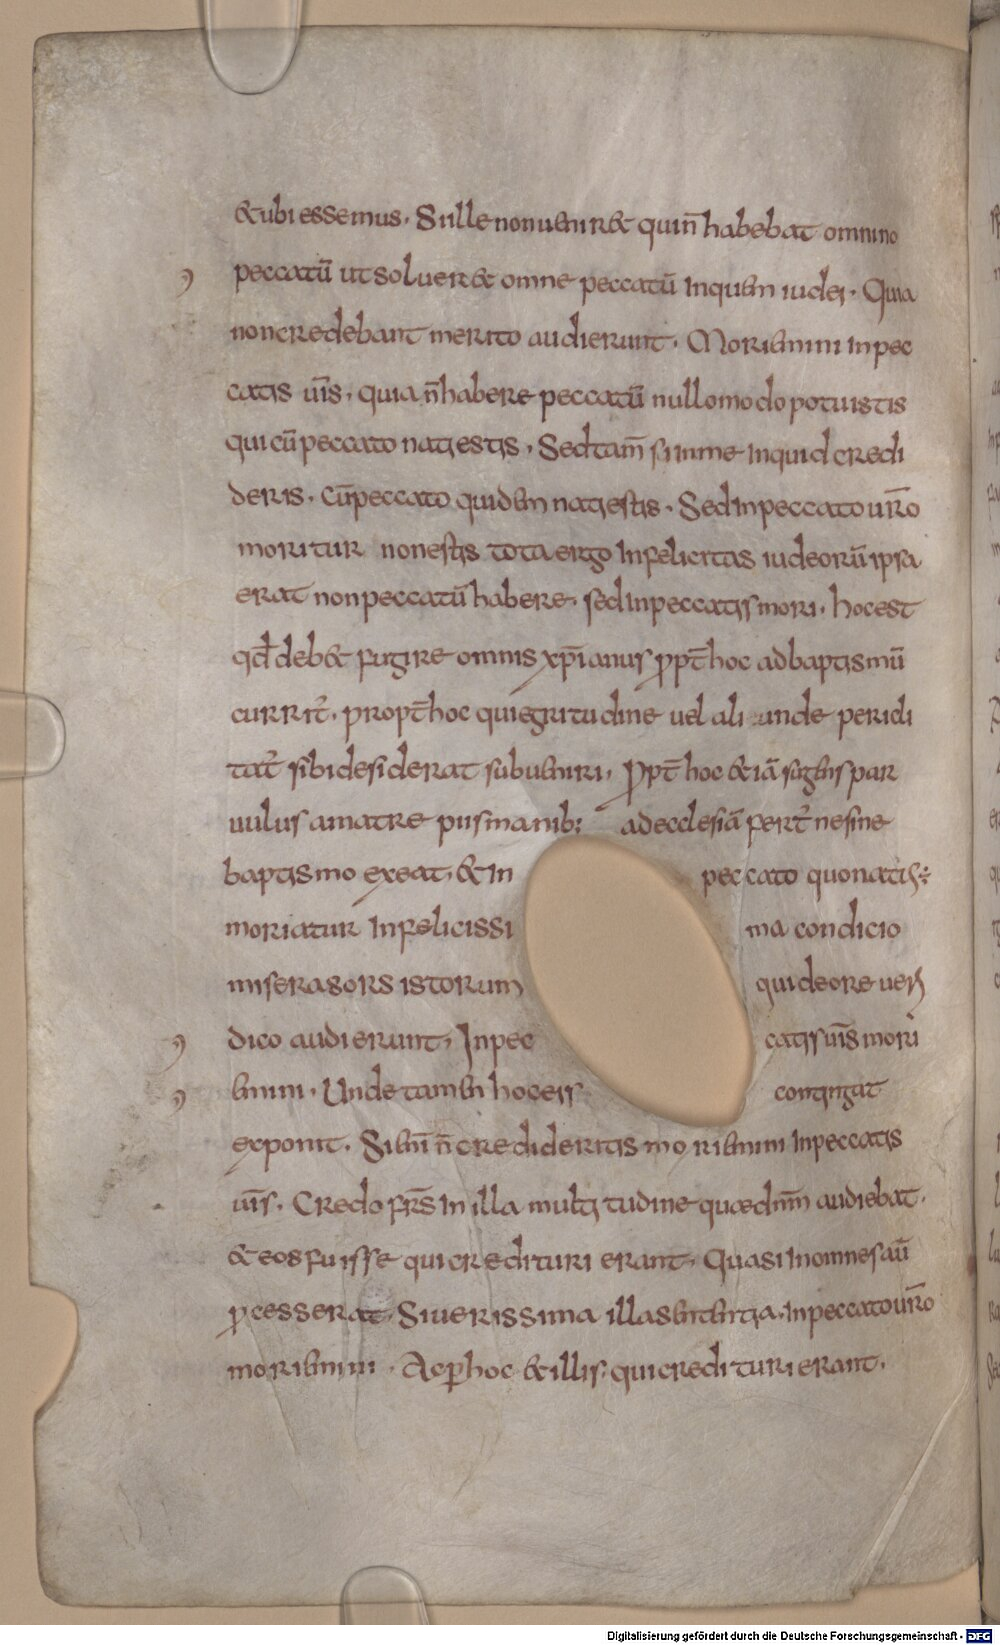 &ubi essemus. Si ille non uenir& qui n̄ habebat omnino
peccatū ut soluer& omne peccatū Inquem iudei. Quia
non credebant merito audierunt. Moriemini in pec
catis ur̄is. quia n̄ habere peccatū nullo modo potuistis
qui cū peccato nati estis. Sed tam̄ si inme inquid credi
deris. Cū peccato quidem nati estis. Sed in peccato ur̄o
moritur non estis tota ergo infelicitas iudeorū ipsa
erat non peccatū habere. sed in peccatis mori. hoc est
qđ deb& fugire omnis xp̄ianus ꝓpt̄ hoc ad baptismū
currit̄. propt̄ hoc qui egritudine uel aliunde peridi
tat̄ sibi desiderat subueniri. ꝓpt̄ hoc &iā sugens par
uulus a matre piis manib; ad ecclesiā fert̄ ne sine
baptismo exeat. & in peccato quo natus
moriatur Infelicissi ma condicio
misera sors istorum qui de ore ueri
dico audierunt. In pec catis ur̄is mori
emini. Unde tamen hoc eis contingat
exponit. Si enī n̄ credideritis moriemini in peccatis
ur̄is. Credo fr̄s in illa multitudine quæ dnm̄ audiebat.
& eos fuisse qui credituri erant. Quasi in omnes aū
ꝓcesserat. Siuerissima illa sententia. in peccato ur̄o
moriemini. Ac ꝑ hoc & illis. qui credituri erant.
Digitalisierung gefördert durch die Deutsche Forschungsgemeinschaft - DFG